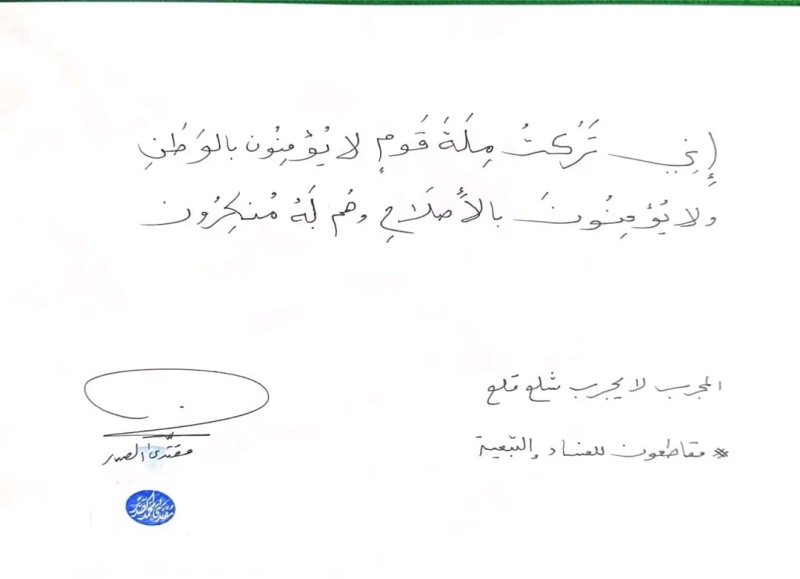 إِنِّي تَرَكْتُ مِلَةَ قَومٍ لا يُؤمِنُون بالوَطَنِ
ولا يُؤمِنُونَ بالأَصلَاحِ وهُم لَهُ مُنكِرُون
المجرب لا يجرب شلع قلع
* مقاطعون للفساد والتبعية
مقتدى الصدر